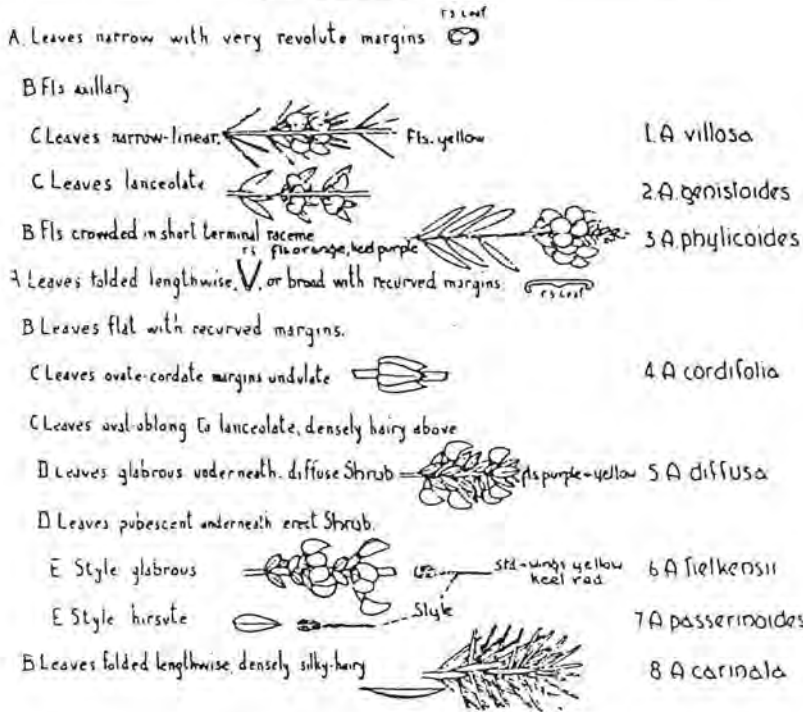 T S Leaf
A. Leaves narrow with very revolute margins
B Fls axillary
C Leaves narrow-linear. Fls. yellow 1. A villosa
C Leaves lanceolate 2. A. genistoides
B Fls crowded in short terminal raceme 3 A. phylicoides
T S fls orange, keel purple
A Leaves folded lengthwise, V, or broad with recurved margins T S Leaf
B Leaves flat with recurved margins.
C Leaves ovate-cordate margins undulate 4 A cordifolia
C Leaves oval-oblong to lanceolate, densely hairy above
D Leaves glabrous underneath. diffuse Shrub fls purple-yellow 5 A diffusa
D Leaves pubescent underneath erect Shrub.
E Style glabrous std-wings yellow 6 A fielkensii
keel red
E Style hirsute Style 7 A passerinoides
B Leaves folded lengthwise, densely silky-hairy 8 A carinala